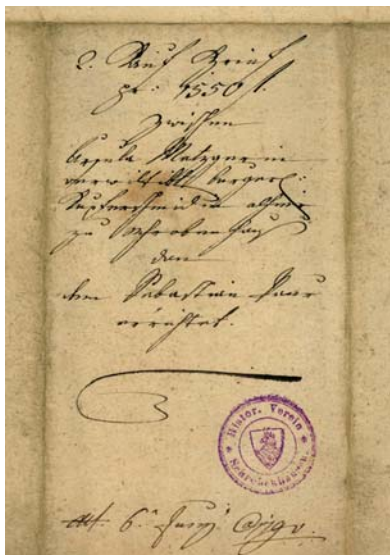 2. Kauf Brief
pr: 1550 f.
zwischen
Ursula Metzgerin
verwittibt. burgerl:
Kupferschmidin allhier
zu Schrobenhaus
dan
dem Sebastian Paur
errichtet.
Histor. Verein
Schrobenhausen.
6. Juny